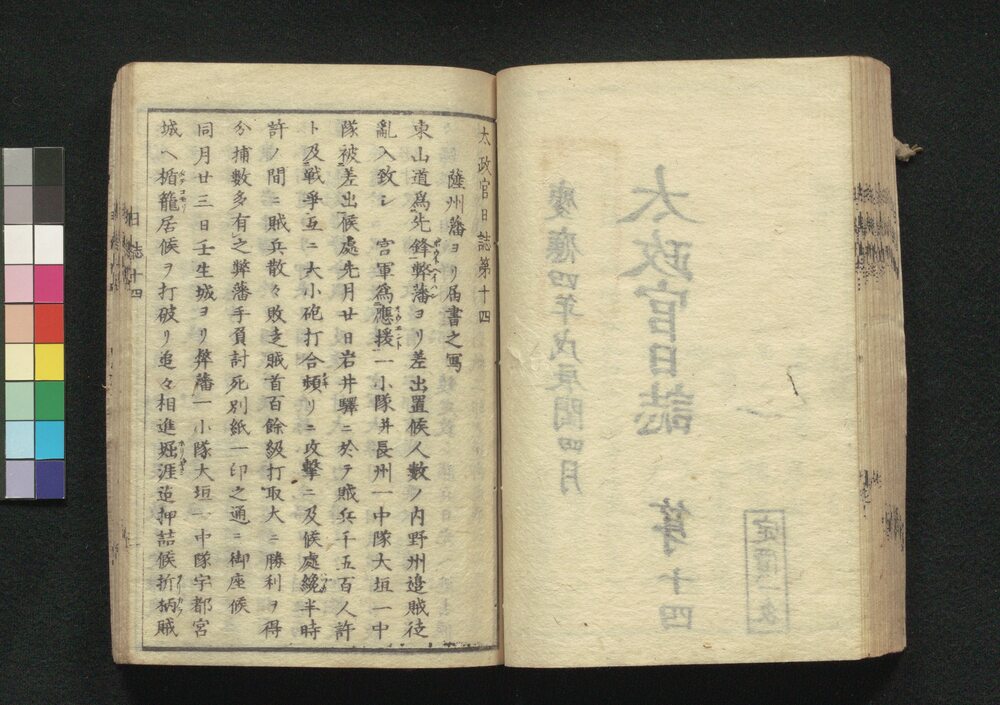 太政官日誌第十四
慶應四年戊辰閏四月
太政官日誌第十四
薩州藩ヨリ届書之寫
東山道爲先鋒弊藩ヨリ差出置候人數ノ内野州邉賊徒
亂入致シ 官軍爲應援一小隊并長州一中隊大垣一中
隊被差出候處先月廿日岩井驛ニ於ヲ賊兵千五百人許
ト及戰爭互ニ大小砲打合頻リニ攻擊ニ及候處纔半時
許ノ間ニ賊兵散々敗走賊首百餘級打取大ニ勝利ヲ得
分捕數多有之弊藩手負討死別紙一印之通ニ御座候
同月廿三日壬生城ヨリ弊藩一小隊大垣一中隊宇都宮
城ヘ楯籠居候ヲ打破リ追々相進堀涯迠押詰候折柄賊
日誌十四